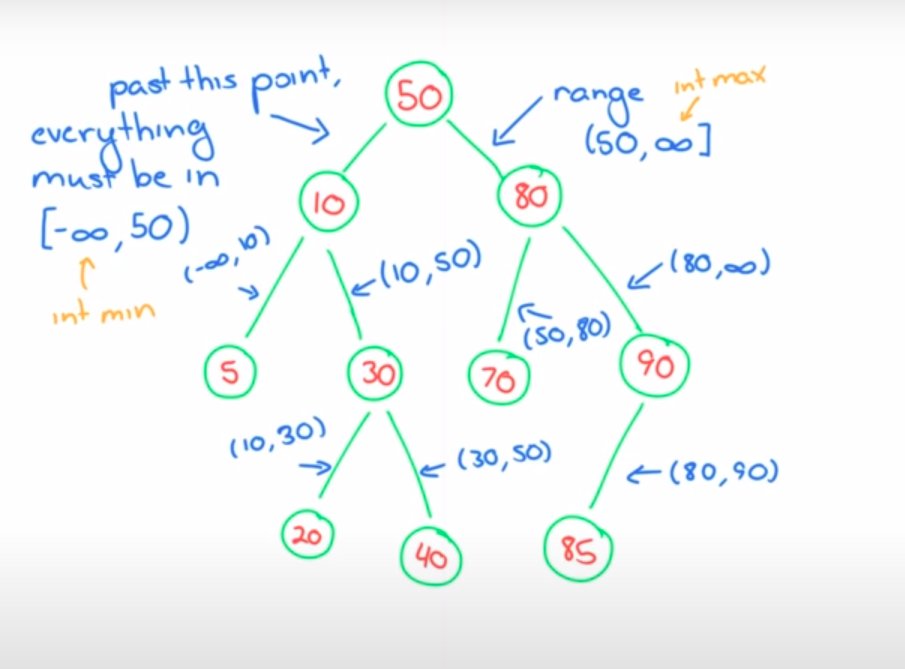 past this point,
everything
must be in
[-∞, 50)
int min
50
range
(50, ∞]
int max
10
80
(-∞, 10)
(10, 50)
(50, 80)
(80, ∞)
5
30
70
90
(10, 30)
(30, 50)
(80, 90)
20
40
85